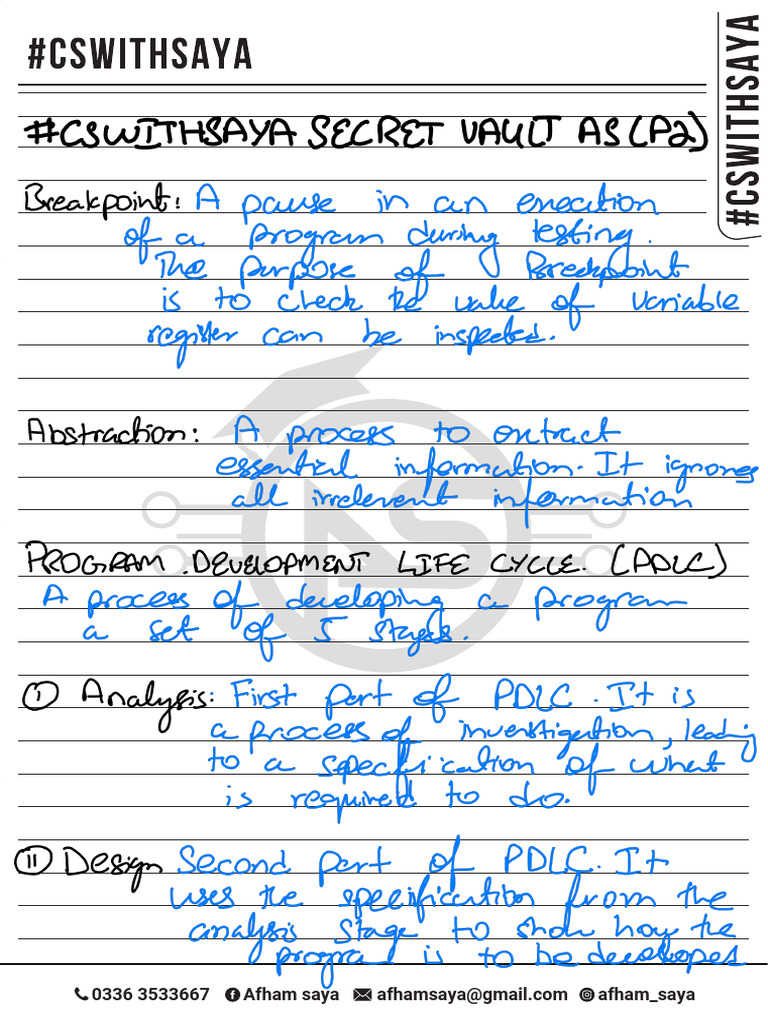 #CSWITHSAYA
#CSWITHSAYA
#CSWITHSAYA SECRET VAULT AS (P2)
Breakpoint: A pause in an execution
of a program during testing.
The purpose of Breakpoint
is to check the value of variable
register can be inspected.
Abstraction: A process to extract
essential information. It ignores
all irrelevent information
PROGRAM DEVELOPMENT LIFE CYCLE. (PDLC)
A process of developing a program
a set of 5 stages.
(i) Analysis: First part of PDLC. It is
a process of investigation, leading
to a specification of what
is required to do.
(ii) Design Second part of PDLC. It
uses the specification from the
analysis stage to show how the
program is to be developed
0336 3533667 Afham saya afhamsaya@gmail.com afham_saya